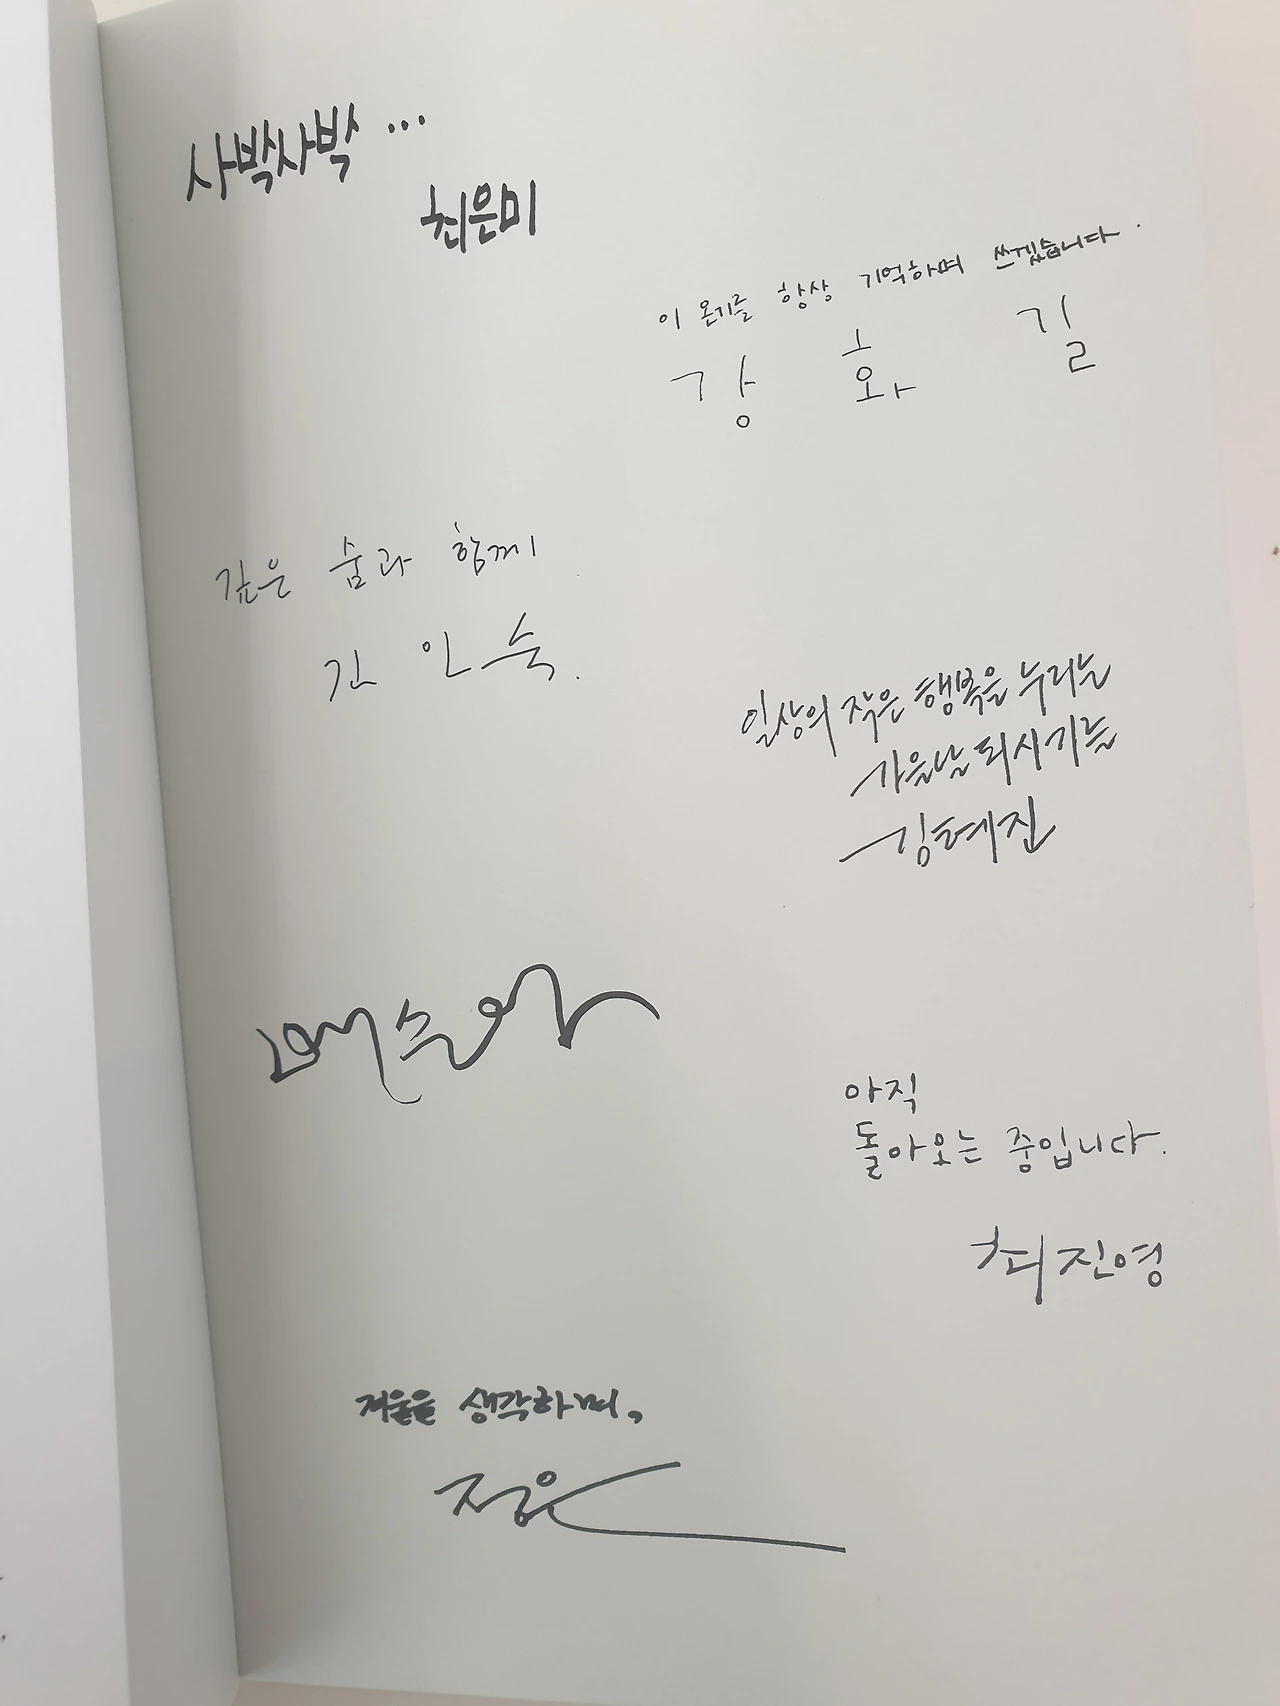 사박사박 ...
최은미
이 온기를 항상 기억하며 쓰겠습니다.
강 화 길
깊은 숨과 함께
김 인 숙.
일상의 작은 행복을 누리는
가을날 되시기를
김혜진
아직
돌아오는 중입니다.
최진영
겨울을 생각하며,